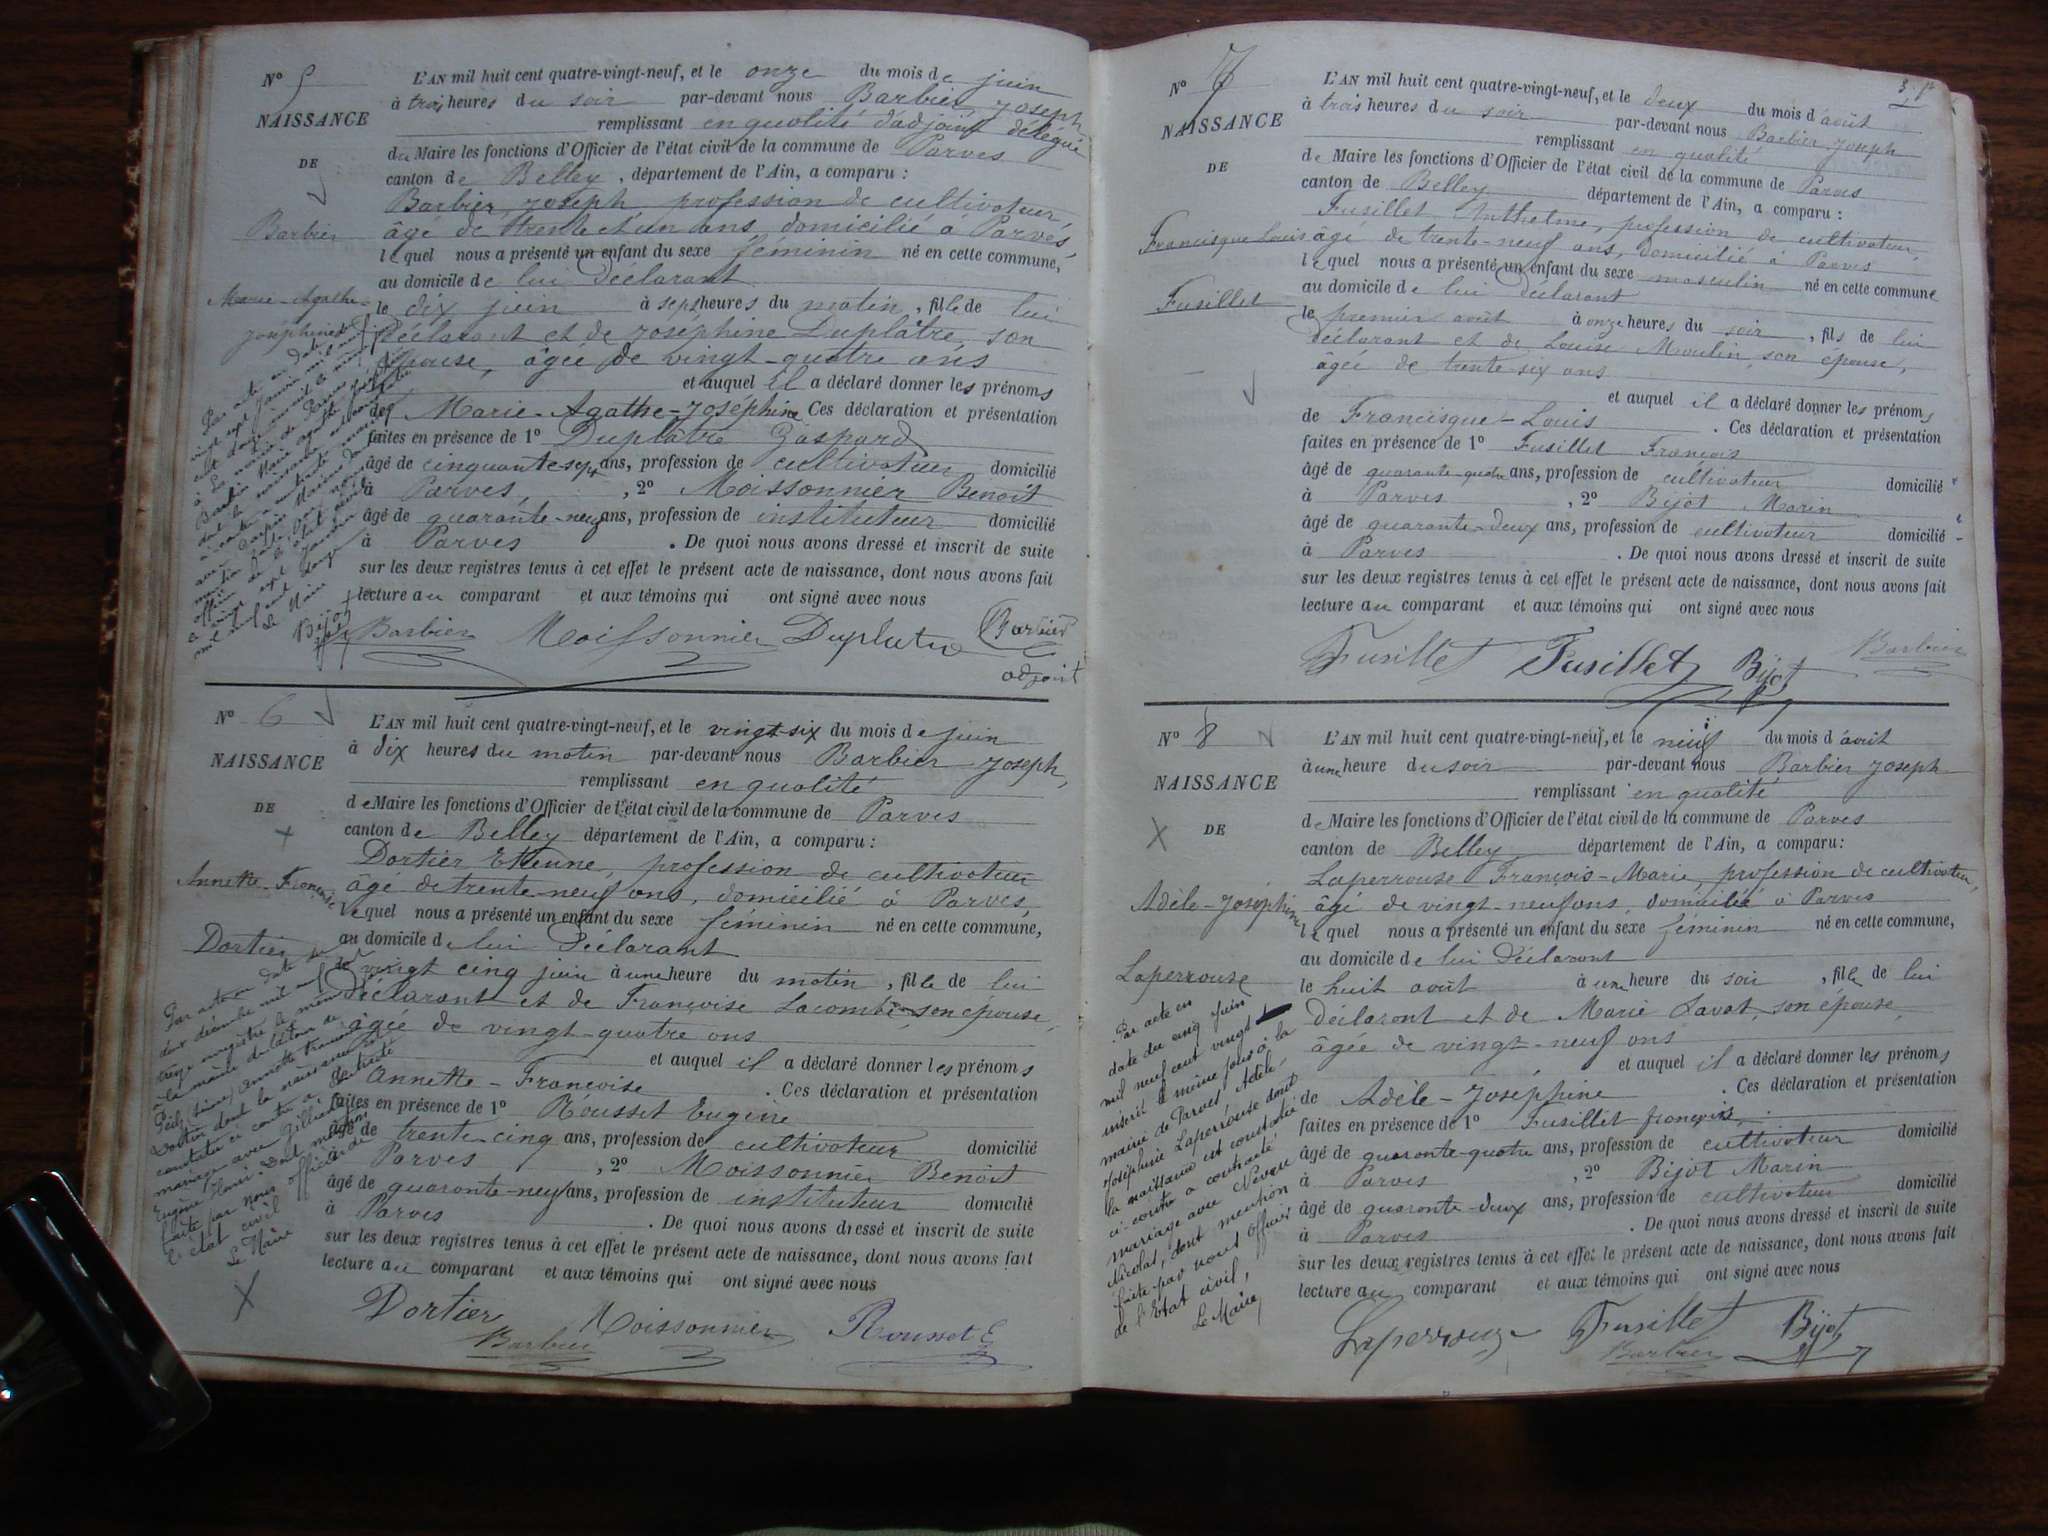 N° 5
NAISSANCE
DE
Barbier
Marie-Agathe-
Joséphine
L'AN mil huit cent quatre-vingt-neuf, et le onze du mois de juin
à trois heures du soir par-devant nous Barbier Joseph
remplissant en qualité d'adjoint délégué
du Maire les fonctions d'Officier de l'état civil de la commune de Parves
canton de Belley, département de l'Ain, a comparu :
Barbier Joseph profession de cultivateur
âgé de trente et un ans, domicilié à Parves,
lequel nous a présenté un enfant du sexe féminin né en cette commune,
au domicile de lui déclarant
le dix juin à sept heures du matin, fille de lui
déclarant et de Joséphine Duplâtre, son
épouse, âgée de vingt-quatre ans
et auquel il a déclaré donner les prénoms
de Marie-Agathe-Joséphine Ces déclaration et présentation
faites en présence de 1° Duplâtre Gaspard
âgé de cinquante-sept ans, profession de cultivateur domicilié
à Parves, , 2° Moissonnier Benoît
âgé de quarante-neuf ans, profession de instituteur domicilié
à Parves . De quoi nous avons dressé et inscrit de suite
sur les deux registres tenus à cet effet le présent acte de naissance, dont nous avons fait
lecture au comparant et aux témoins qui ont signé avec nous
Barbier Moissonnier Duplatre Barbier
adjoint
Par acte en date du
vingt sept janvier mil neuf
cent douze
Bijot
N° 6
NAISSANCE
DE
Annette-Françoise
Dortier
L'AN mil huit cent quatre-vingt-neuf, et le vingt-six du mois de juin
à dix heures du matin par-devant nous Barbier Joseph,
remplissant en qualité
de Maire les fonctions d'Officier de l'état civil de la commune de Parves
canton de Belley département de l'Ain, a comparu :
Dortier Etienne, profession de cultivateur
âgé de trente-neuf ans, domicilié à Parves,
lequel nous a présenté un enfant du sexe féminin né en cette commune,
au domicile de lui déclarant
le vingt cinq juin à une heure du matin, fille de lui
déclarant et de Françoise Lacombe son épouse,
âgée de vingt-quatre ans
et auquel il a déclaré donner les prénoms
de Annette-Françoise . Ces déclaration et présentation
faites en présence de 1° Rousset Eugène
âgé de trente-cinq ans, profession de cultivateur domicilié
à Parves , 2° Moissonnier Benoît
âgé de quarante-neuf ans, profession de instituteur domicilié
à Parves . De quoi nous avons dressé et inscrit de suite
sur les deux registres tenus à cet effet le présent acte de naissance, dont nous avons fait
lecture au comparant et aux témoins qui ont signé avec nous
Dortier Moissonnier Rousset E
Barbier
Par acte en date du
deux décembre mil neuf cent
treize enregistré le même jour
à la mairie de la Tour de
Annette Françoise
Dortier dont la naissance est
constatée ci contre a contracté
mariage avec
Eugène Henri. Dont mention
faite par nous officier de
l'état civil
Le Maire
N° 7
NAISSANCE
DE
Francisque Louis
Fusillet
L'AN mil huit cent quatre-vingt-neuf, et le deux du mois d'août
à trois heures du soir par-devant nous Barbier Joseph
remplissant en qualité
de Maire les fonctions d'Officier de l'état civil de la commune de Parves
canton de Belley département de l'Ain, a comparu :
Fusillet Anthelme, profession de cultivateur,
âgé de trente-neuf ans, domicilié à Parves
lequel nous a présenté un enfant du sexe masculin né en cette commune
au domicile de lui déclarant
le premier août à onze heures du soir, fils de lui
déclarant et de Louise Moulin, son épouse,
âgée de trente-six ans
et auquel il a déclaré donner les prénoms
de Francisque-Louis . Ces déclaration et présentation
faites en présence de 1° Fusillet François
âgé de quarante-quatre ans, profession de cultivateur domicilié
à Parves , 2° Bijot Marin
âgé de quarante-deux ans, profession de cultivateur domicilié
à Parves . De quoi nous avons dressé et inscrit de suite
sur les deux registres tenus à cet effet le présent acte de naissance, dont nous avons fait
lecture au comparant et aux témoins qui ont signé avec nous
Fusillet Fusillet Bijot Barbier
N° 8
NAISSANCE
DE
Adèle-Joséphine
Laperrouse
L'AN mil huit cent quatre-vingt-neuf, et le neuf du mois d'août
à une heure du soir par-devant nous Barbier Joseph
remplissant en qualité
de Maire les fonctions d'Officier de l'état civil de la commune de Parves
canton de Belley département de l'Ain, a comparu :
Laperrouse François-Marie, profession de cultivateur,
âgé de vingt-neuf ans, domicilié à Parves
lequel nous a présenté un enfant du sexe féminin né en cette commune,
au domicile de lui déclarant
le huit août à une heure du soir, fille de lui
déclarant et de Marie Savat, son épouse,
âgée de vingt-neuf ans
et auquel il a déclaré donner les prénoms
de Adèle-Joséphine . Ces déclaration et présentation
faites en présence de 1° Fusillet françois,
âgé de quarante-quatre ans, profession de cultivateur domicilié
à Parves , 2° Bijot Marin
âgé de quarante-deux ans, profession de cultivateur domicilié
à Parves . De quoi nous avons dressé et inscrit de suite
sur les deux registres tenus à cet effet le présent acte de naissance, dont nous avons fait
lecture au comparant et aux témoins qui ont signé avec nous
Laperrouze Fusillet Bijot
Barbier
Par acte en
date du cinq juin
mil neuf cent vingt
inscrit le même jour à la
mairie de Parves Adèle
Joséphine Laperrouse dont
la naissance est constatée
ci-contre a contracté
mariage avec Neveu
Nicolas, dont mention
faite par nous officier
de l'Etat civil,
Le Maire